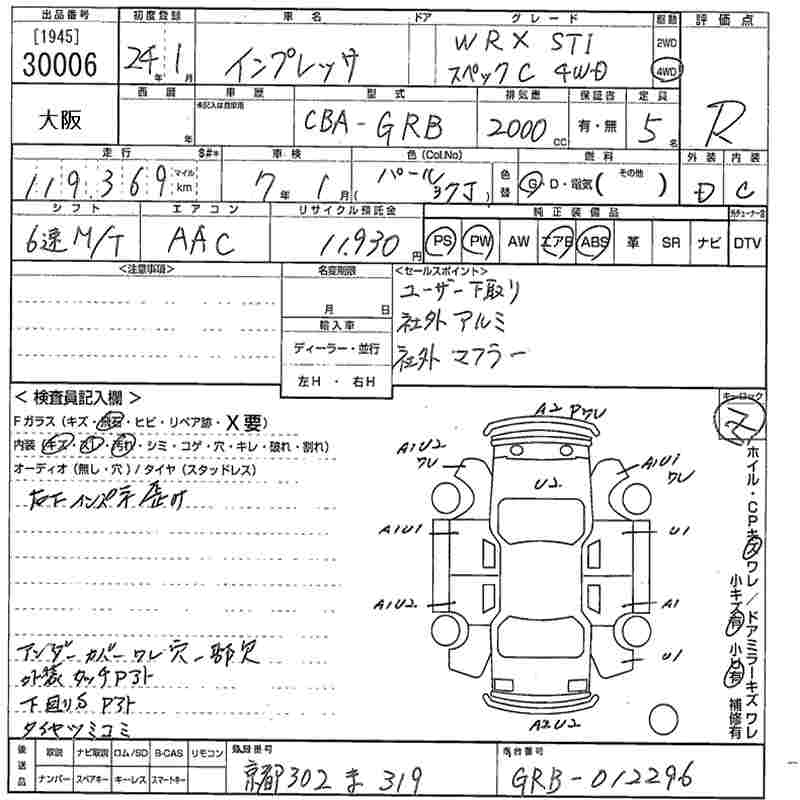 出品番号 初度登録 車名 ドア グレード 駆動 評価点
[1945]
30006 24年1月 インプレッサ WRX STI 2WD
スペックC 4WD 4WD
大阪 西暦 車歴 型式 排気量 保証書 定員 R
年 未記入は自家用 CBA-GRB 2000cc 有・無 5名
走行 $#* 車検 色(Col.No) 燃料 外装 内装
119,369 マイル km 7年1月 ( パール 37J ) 色替 G・D・電気( その他 ) D C
シフト エアコン リサイクル預託金 純正装備品
6速M/T AAC 11,930円 PS PW AW エアB ABS 革 SR ナビ DTV
<注意事項> 名変期限 <セールスポイント>
月 日 ユーザー下取り
輸入車 社外アルミ
ディーラー・並行 社外マフラー
左H・右H
<検査員記入欄> キーロック
Fガラス(キズ・飛石・ヒビ・リペア跡・X要)
内装(キズ・スレ・汚れ・シミ・コゲ・穴・キレ・破れ・割れ)
オーディオ(無し・穴)/タイヤ(スタッドレス)
A2 Pワレ
A1U2 ワレ
A1U1 ワレ
U2.
A1U1
U1
A1U2.
A1
U1
A2U2
ホイル・CPキズワレ/ドアミラーキズワレ
小キズ有 小U有 補修有
アンダーカバーワレ穴一部欠
外装タッチPアト
下回りS Pアト
タイヤツミコミ
後送品 取説 ナビ取説 ロム/SD B-CAS リモコン 登録番号 車台番号
ナンバー スペアキー キーレス スマートキー 京都302ま319 GRB-012296